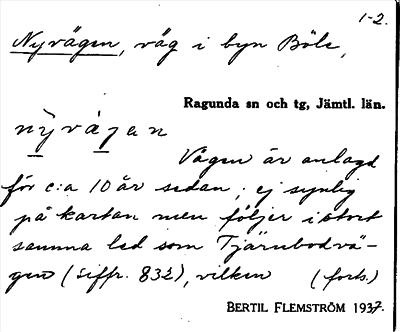 1-2.
Nyvägen, väg i byn Böle,
Ragunda sn och tg, Jämtl. län.
nỳvàgen
Vägen är anlagd
för c:a 10 år sedan, ej synlig
på kartan men följer i stort
samma led som Tjärnbodvä-
gen (siffr. 832), vilken (forts.)
BERTIL FLEMSTRÖM 1937.